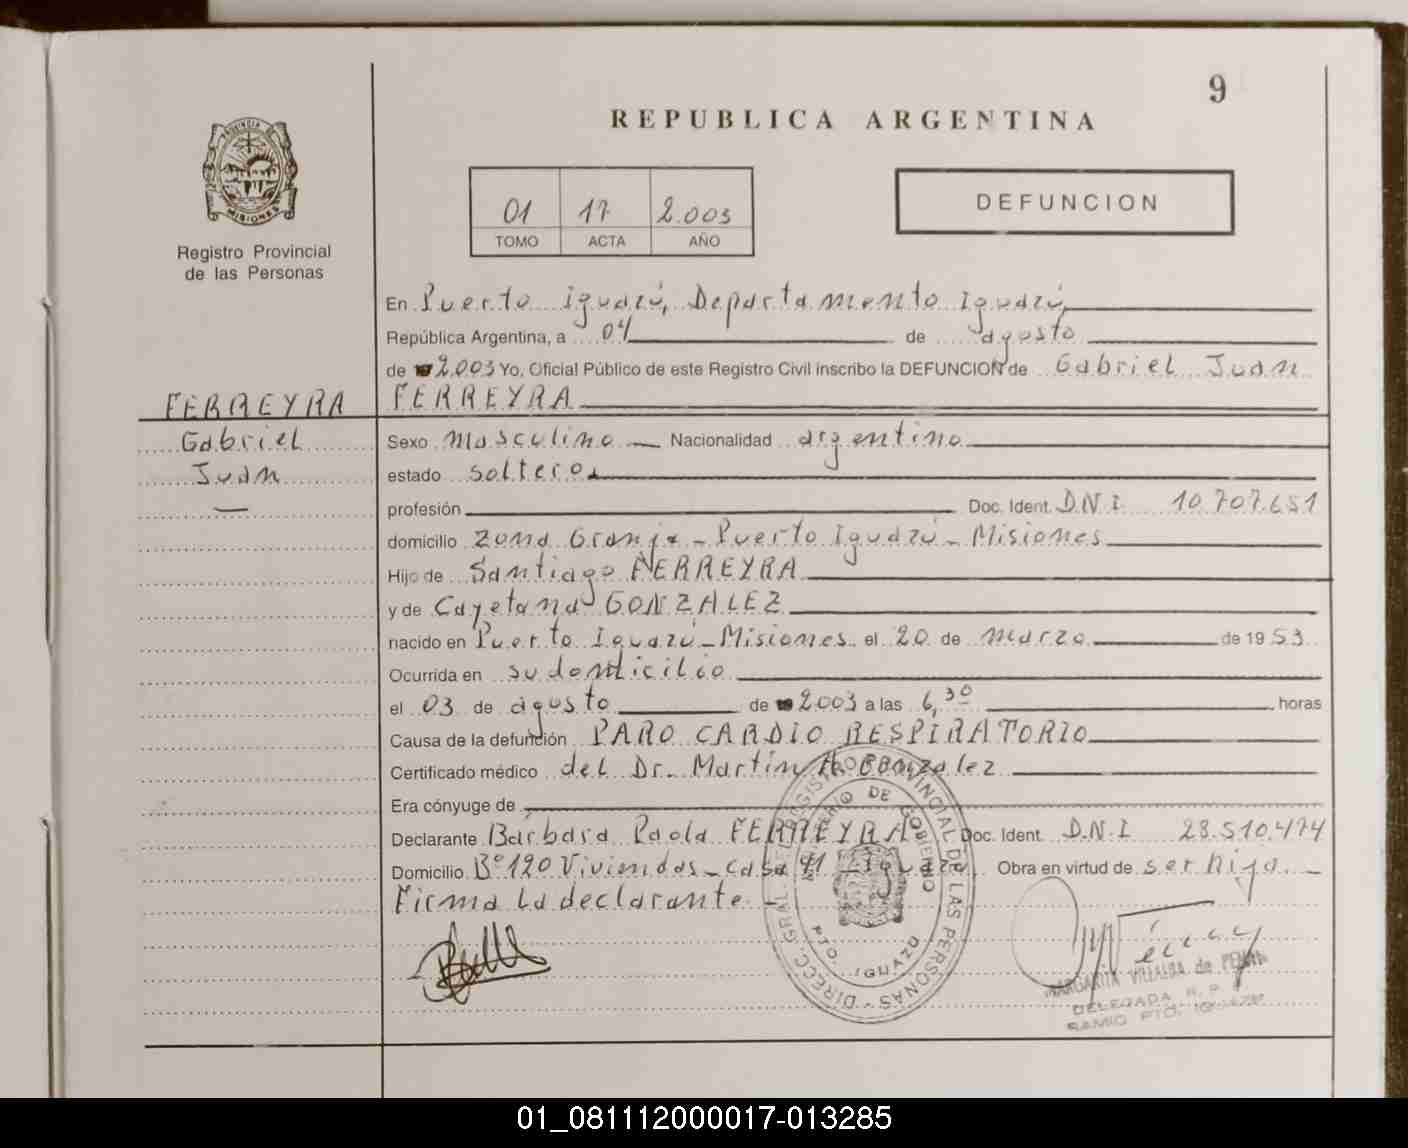 9
REPUBLICA ARGENTINA
PROVINCIA DE MISIONES
Registro Provincial
de las Personas
01 17 2.003
TOMO ACTA AÑO
DEFUNCION
En Puerto Iguazú, Departamento Iguazú,
República Argentina, a 04 de agosto
de 2.003 Yo, Oficial Público de este Registro Civil inscribo la DEFUNCION de Gabriel Juan
FERREYRA
FERREYRA
Gabriel
Juan
Sexo masculino Nacionalidad argentino
estado soltero.
profesión Doc. Ident. D.N.I. 10.707.651
domicilio Zona Granja - Puerto Iguazú - Misiones
Hijo de Santiago FERREYRA
y de Cayetana GONZALEZ
nacido en Puerto Iguazú - Misiones el 20 de marzo de 1953
Ocurrida en su domicilio
el 03 de agosto de 2003 a las 6,30 horas
Causa de la defunción PARO CARDIO RESPIRATORIO
Certificado médico del Dr. Martín A. Gonzalez
Era cónyuge de
Declarante Bárbara Paola FERREYRA Doc. Ident. D.N.I 28.510.474
Domicilio Bº 120 Viviendas - casa 41 - Iguazú. Obra en virtud de ser hija. -
Firma la declarante. -
DIRECC. GRAL. DEL REGISTRO PROVINCIAL DE LAS PERSONAS -
MINISTERIO DE GOBIERNO
PTO. IGUAZU
MARGARITA VILLALBA de
DELEGADA R. P.
PTO. IGUAZU
01_081112000017-013285